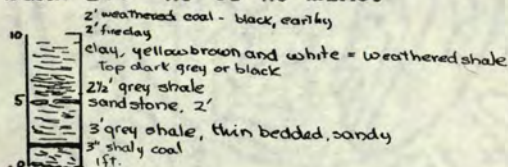 2' weathered coal - black, earthy
10
2' fireclay
clay, yellow brown and white = weathered shale
Top dark grey or black
2½' grey shale
5
sandstone, 2'
3' grey shale, thin bedded, sandy
3" shaly coal
0
1ft.